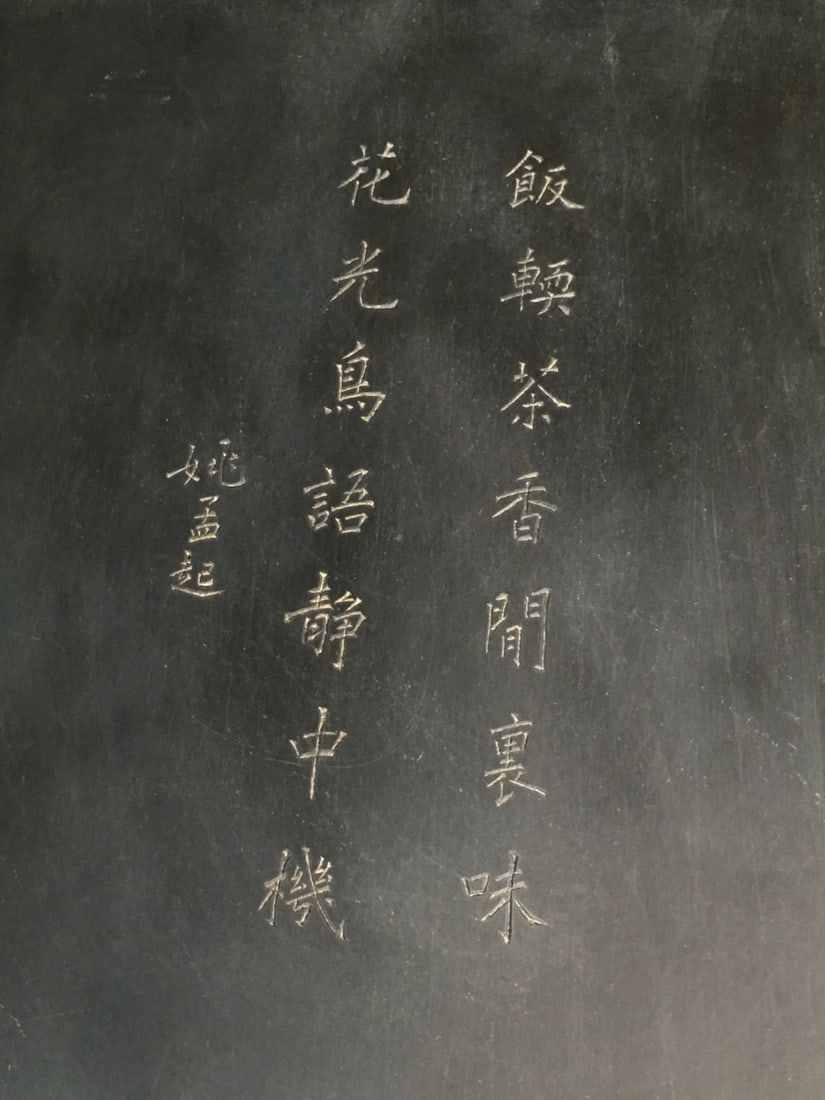 飯輭茶香閒裏味
花光鳥語靜中機
姚孟起